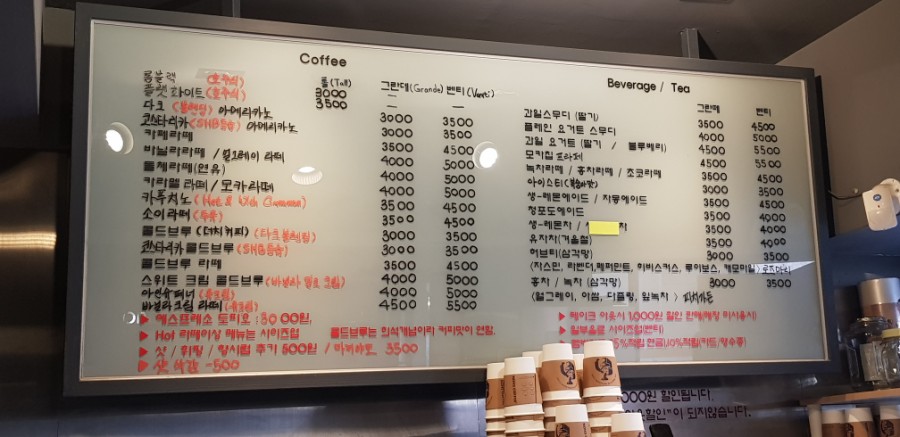 Coffee
롱(Tall) 그란데(Grande) 벤티(Venti)
롱블랙 (호주식) 3000 — —
플랫화이트 (호주식) 3500 — —
다크 (블렌딩) 아메리카노 3000 3500
코스타리카 (SHB등급) 아메리카노 3000 3500
카페라떼 3500 4500
바닐라라떼 / 얼그레이 라떼 4000 5000
돌체라떼(연유) 4000 5000
카라멜 라떼 / 모카라떼 4000 5000
카푸치노 3500 4500
소이라떼 (두유) 3500 4500
콜드브루 (더치커피) 3000 3500
코스타리카 콜드브루 (SHB등급) 3000 3500
콜드브루 라떼 3500 4500
스위트 크림 콜드브루 4000 5000
아인슈페너 4000 5000
바닐라크림 라떼 4500 5500
▶ 에스프레소 도피오 : 3000원,
▶ Hot 라떼이상 메뉴는 사이즈업 콜드브루는 원석개념이라 커피맛이 연함.
▶ 샷 / 휘핑 / 향시럽 추가 500원 / 마끼아또 3500
▶ 샷 삭감 -500
Beverage / Tea
그란데 벤티
과일스무디 (딸기) 3500 4500
플레인 요거트 스무디 4500 5000
과일 요거트 (딸기 / 블루베리) 4500 5500
모카칩 프라페 4500 5500
녹차라떼 / 홍차라떼 / 초코라떼 3500 4500
아이스티 3000 3500
생-레몬에이드 / 자몽에이드 3500 4500
청포도에이드 3500 4000
생-레몬차 / 차 3500 4000
유자차(겨울철) 3500 4000
허브티(삼각망) 3000 3500
(자스민, 라벤더, 페퍼민트, 히비스커스, 루이보스, 캐모마일) 로즈마리
홍차 / 녹차 (삼각망) 3000 3500
(얼그레이, 아쌈, 다즐링, 잎녹차)
▶ 테이크 아웃시 1,000원 할인 판매(매장 미사용시)
▶ 일부음료 사이즈업(벤티)
5%적립 현금)10%적립(카드/영수증)
000원 할인됩니다.
할인*이 되지않습니다.